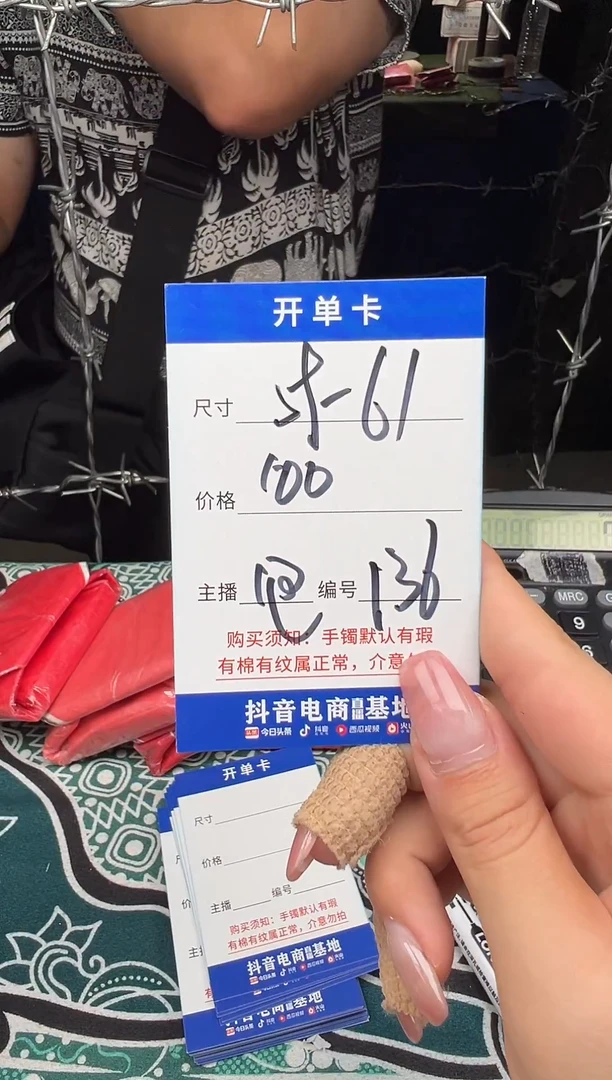 开单卡
尺寸 61
价格 100
主播 编号 136
购买须知：手镯默认有瑕
有棉有纹属正常，介意勿
抖音电商直播基地
今日头条 抖音 西瓜视频 火山
MRC
9
6
开单卡
尺寸
价格
主播 编号
购买须知：手镯默认有瑕
有棉有纹属正常，介意勿拍
抖音电商直播基地
今日头条 抖音 西瓜视频 火山
基地